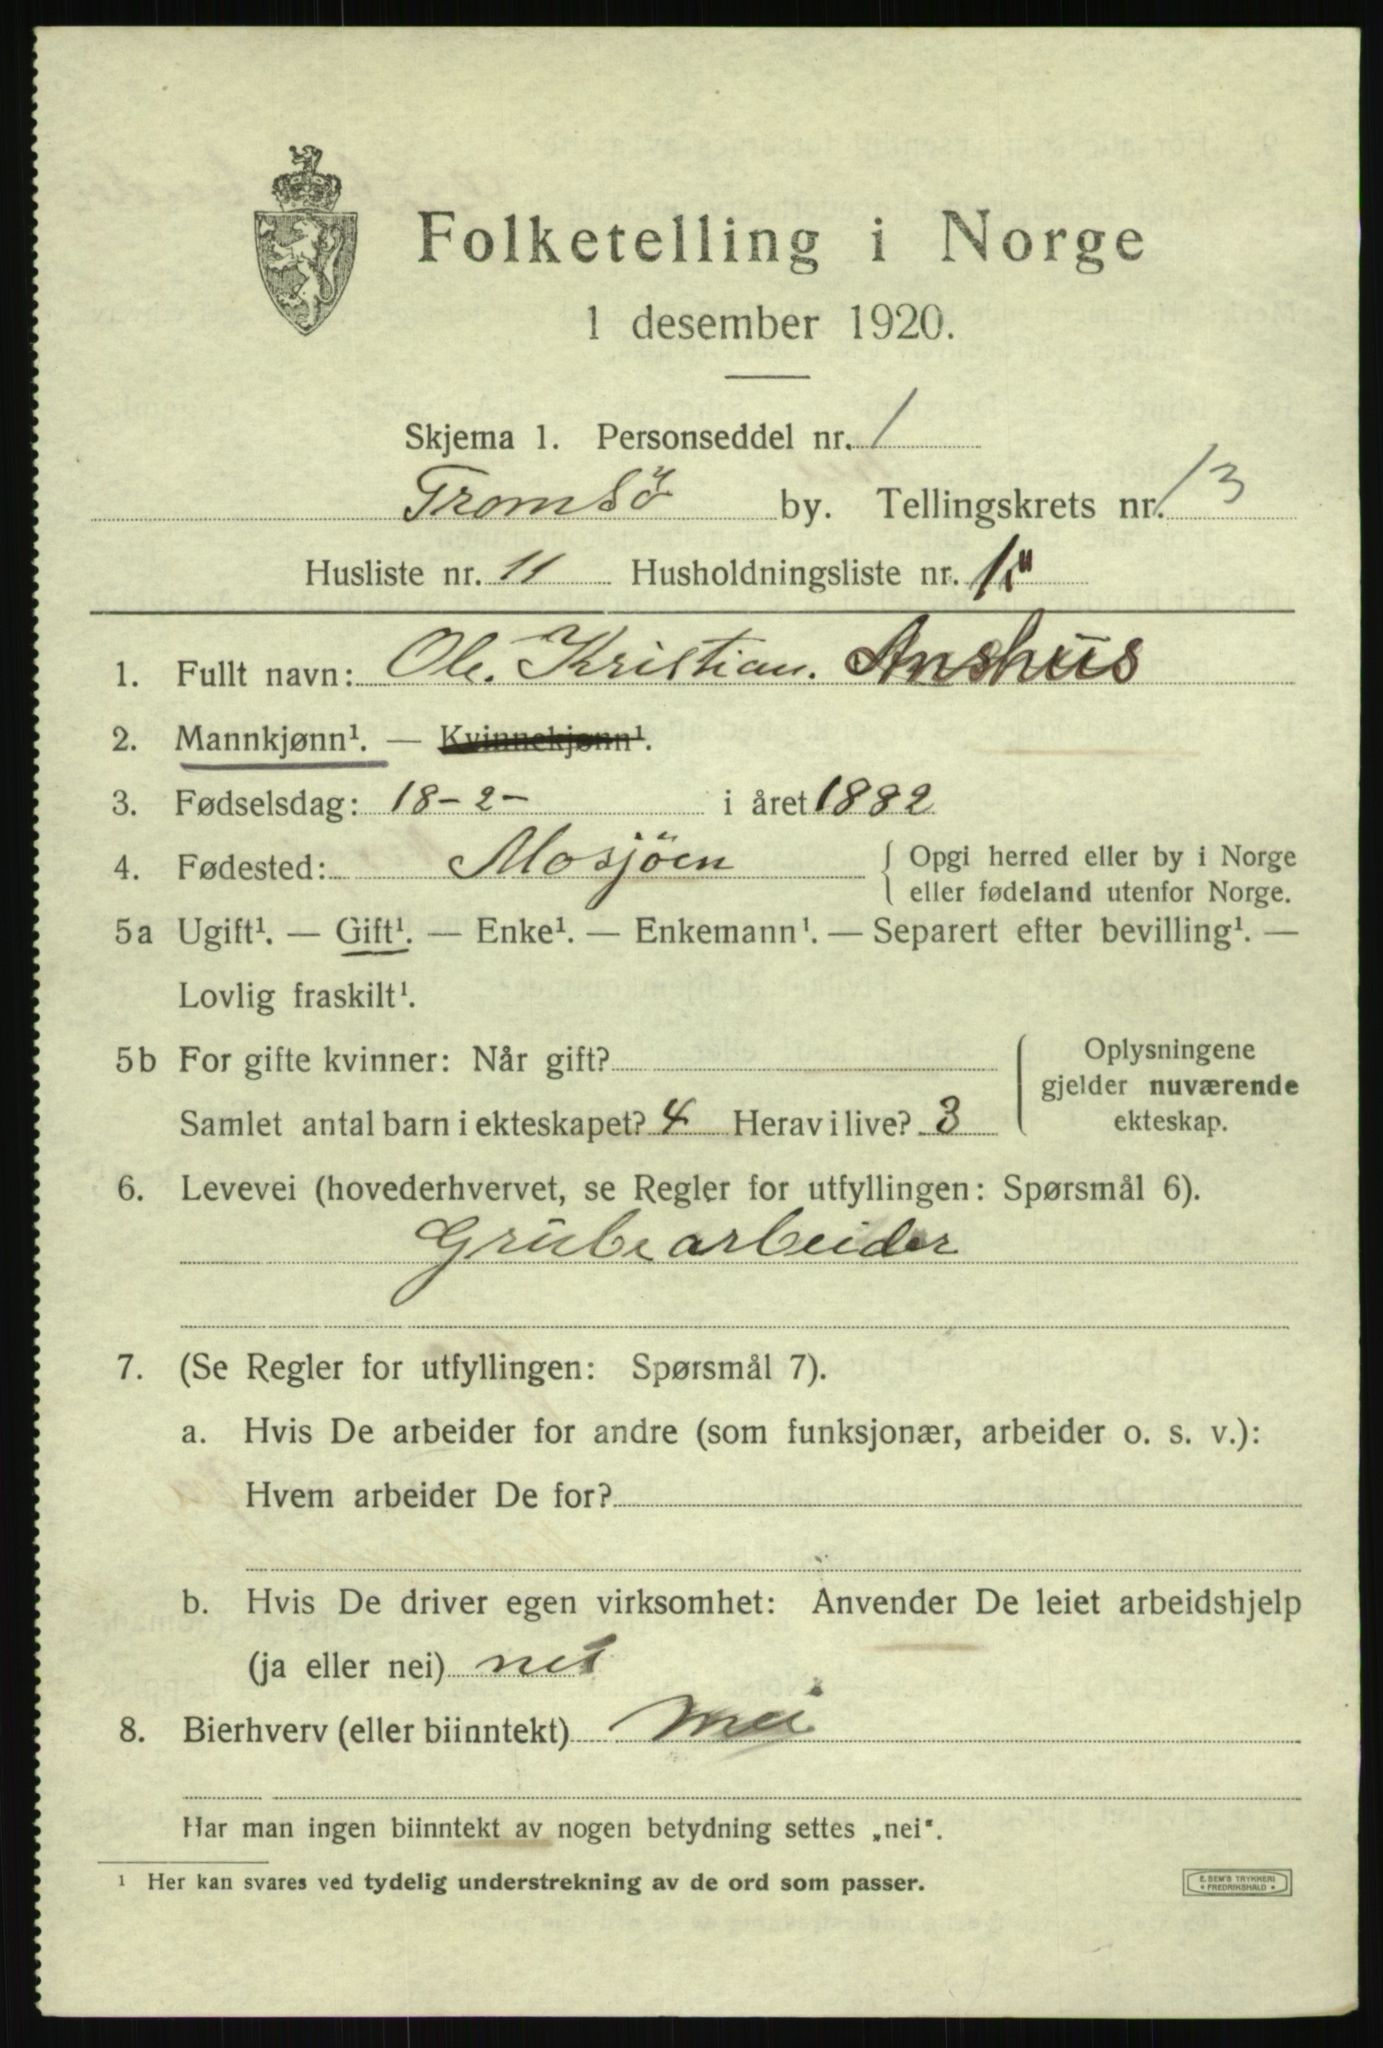 Folketelling i Norge
1 desember 1920.
Skjema 1. Personseddel nr. 1
Tromsö by. Tellingskrets nr. 13
Husliste nr. 11 Husholdningsliste nr.
1. Fullt navn: Ole. Kristian. Anshus
2. Mannkjønn¹. — Kvinnekjønn¹.
3. Fødselsdag: 18-2- i året 1882
4. Fødested: Mosjöen { Opgi herred eller by i Norge
eller fødeland utenfor Norge.
5a Ugift¹. — Gift¹. — Enke¹. — Enkemann¹. — Separert efter bevilling¹. —
Lovlig fraskilt¹.
5b For gifte kvinner: Når gift? { Oplysningene
gjelder nuværende
Samlet antal barn i ekteskapet? 4 Herav i live? 3 ekteskap.
6. Levevei (hovederhvervet, se Regler for utfyllingen: Spørsmål 6).
Grubearbeider
7. (Se Regler for utfyllingen: Spørsmål 7).
a. Hvis De arbeider for andre (som funksjonær, arbeider o. s. v.):
Hvem arbeider De for?
b. Hvis De driver egen virksomhet: Anvender De leiet arbeidshjelp
(ja eller nei) nei
8. Bierhverv (eller biinntekt) nei
Har man ingen biinntekt av nogen betydning settes „nei".
¹ Her kan svares ved tydelig understrekning av de ord som passer.
E. SEM'S TRYKKERI
FREDRIKSHALD